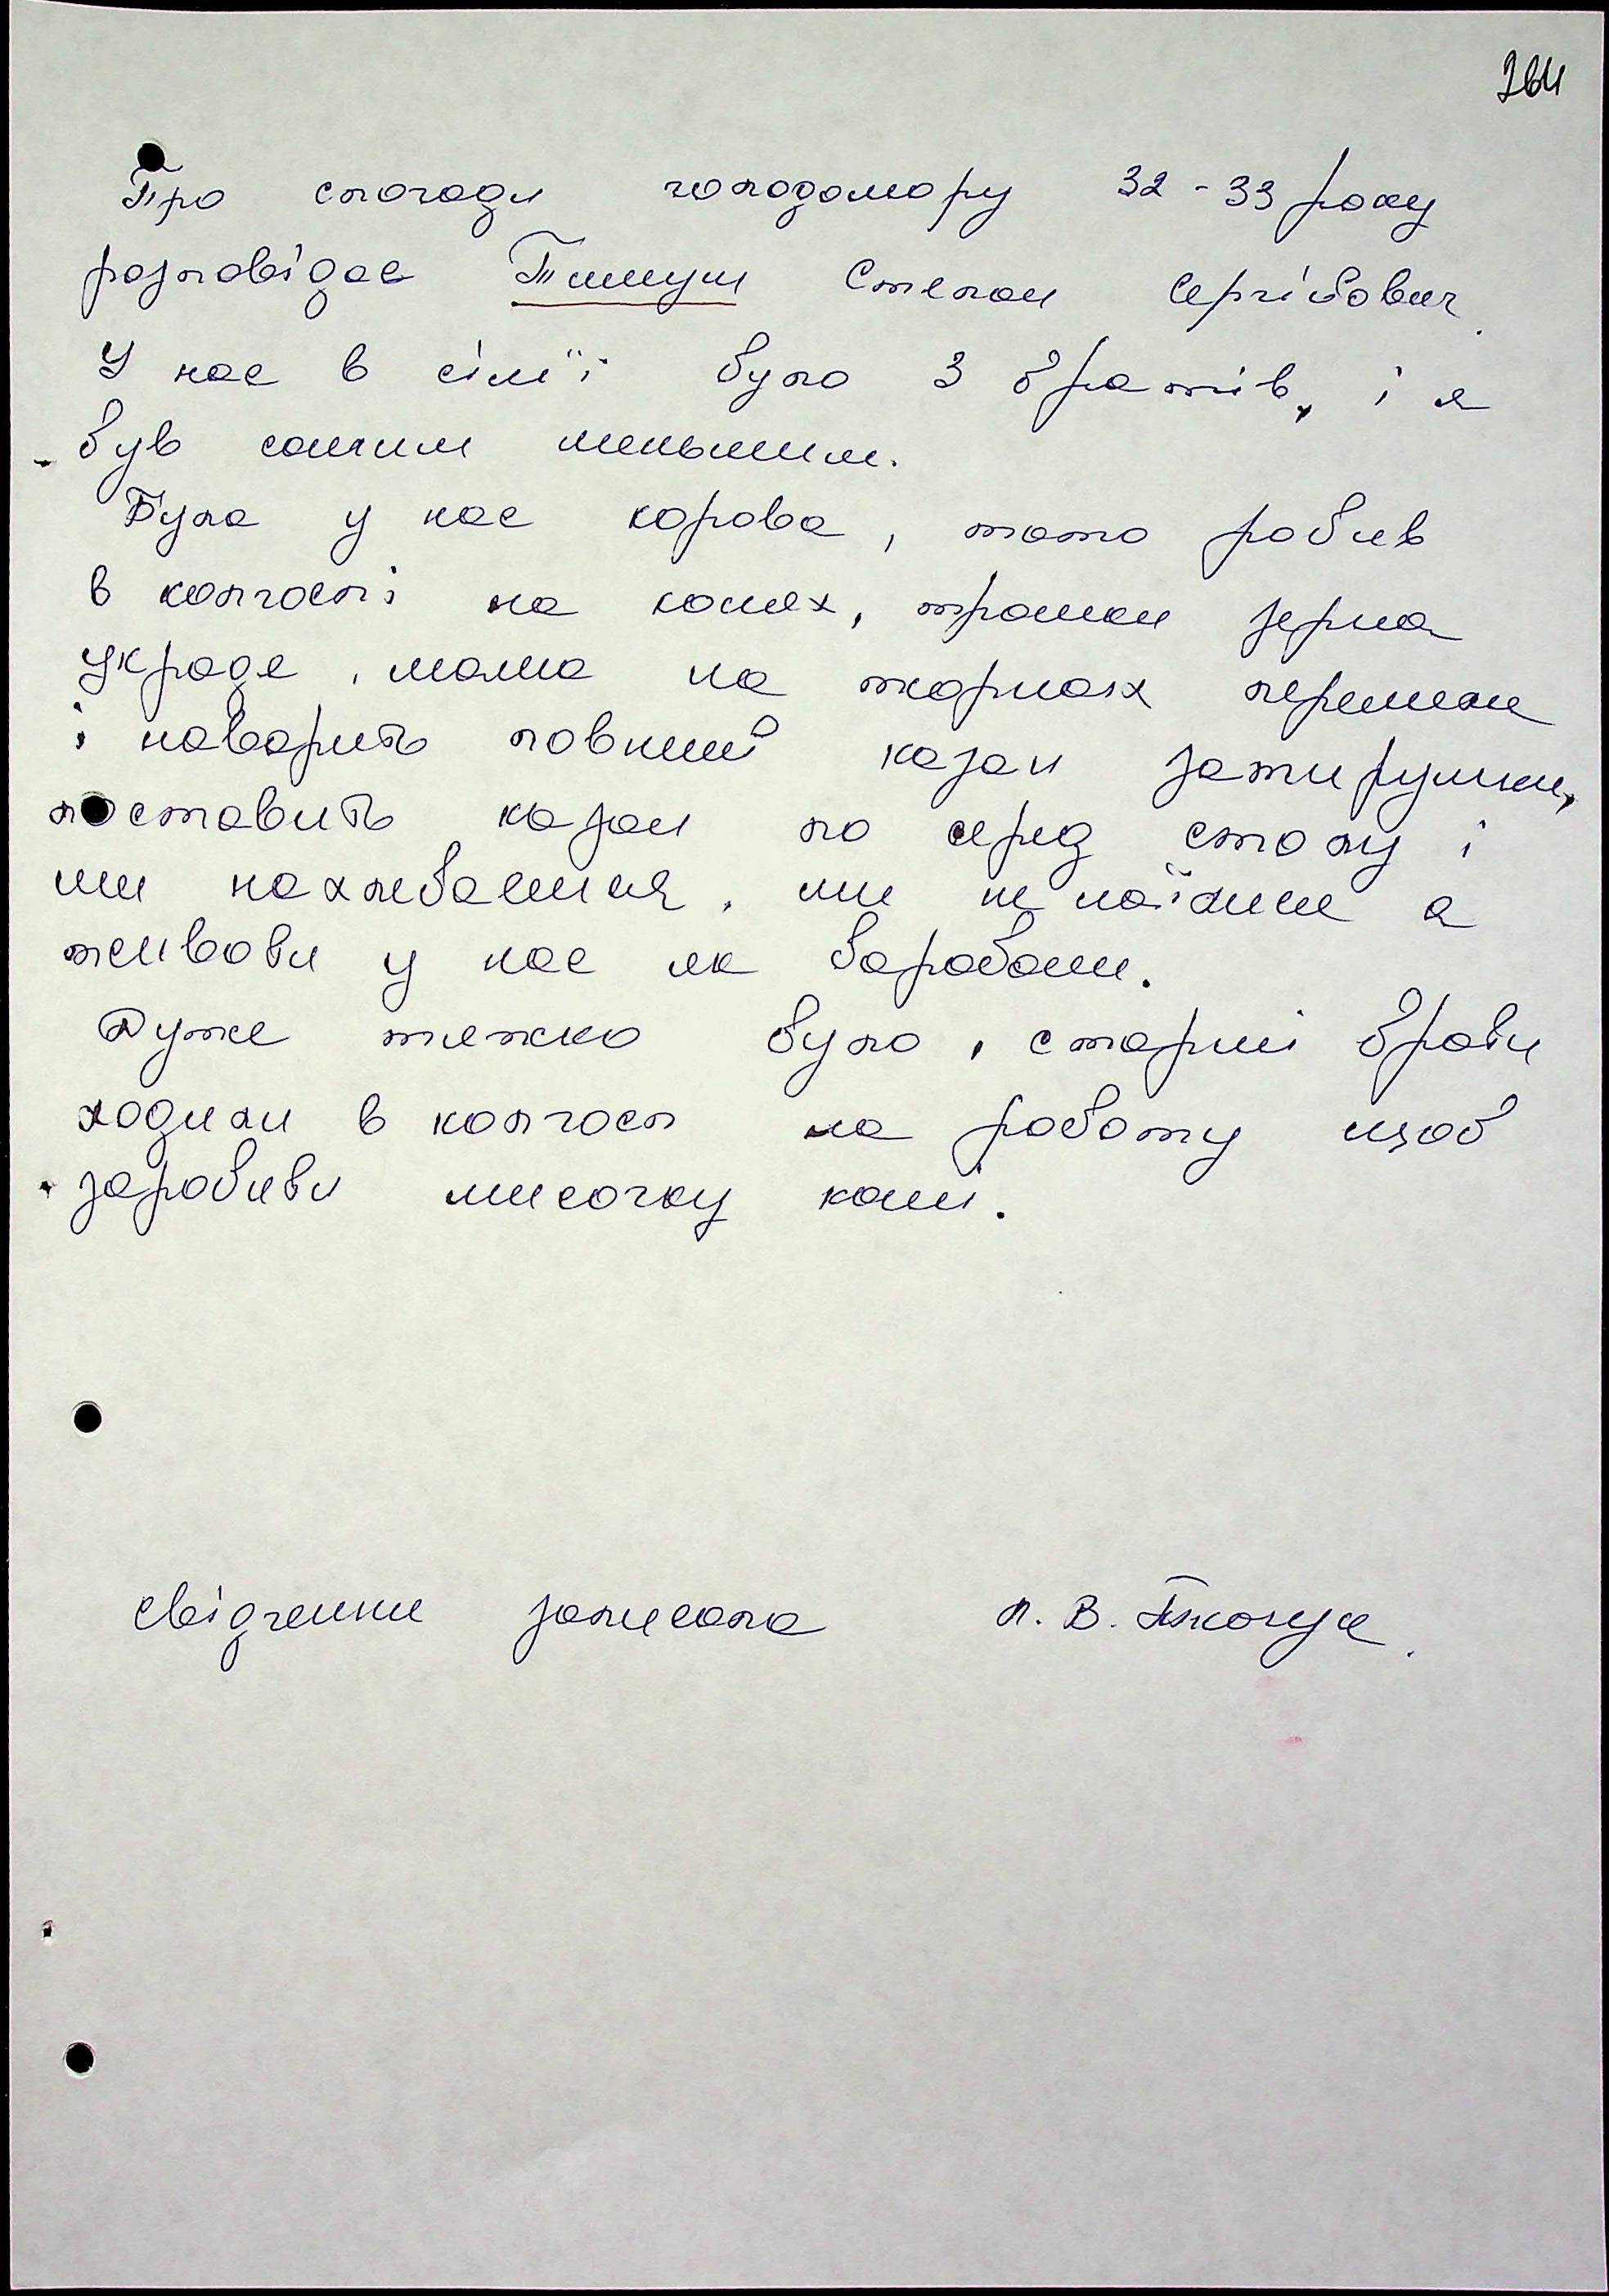 264
Про спогади голодомору 32-33 року
розповідає Тимуш Степан Сергійович.
У нас в сім'ї було 3 братів, і я
був самим меньшим.
Була у нас корова, тато робив
в колгоспі на конях, трошки зерна
украде, мама на жорнах перемеле
і наварить повний казан затирушки,
поставить казан по серед столу і
ми нахлебаемся, ми не наїлися а
животи у нас як барабани.
Дуже тяжко було, старші брати
ходили в колгосп на роботу щоб
заробити мисочку каші.
свідчення записала Л. В. Ткачук.